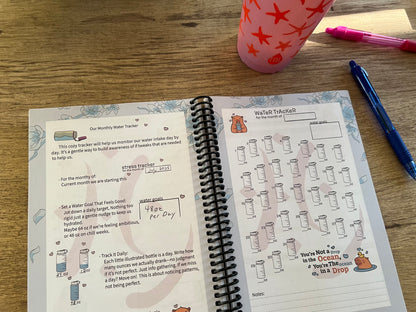 Our Monthly Water Tracker
This cozy tracker will help us monitor our water intake day by
day. It's a gentle way to build awareness if tweaks are needed
to help us.
stress tracker
- For the monthy of
July, 2025
Current month we are starting this
- Set a Water Goal That Feels Good:
Jot down a daily target. Nothing too
rigid just a gentle nudge to keep us
hydrated.
Maybe 64 oz if we're feeling ambitious,
or 48 oz on chill weeks.
water goals
48oz
Per Day
- Track It Daily:
Each little illustrated bottle is a day. Write how
many ounces we actually drank—no judgment
if it's not perfect. Just info gathering. If we miss
a day? Move on! This is about noticing patterns,
not being perfect.
WaTeR TrAcKeR
for the month of
water goals
You're Not a drop
in the Ocean,
You're The ocean
in a Drop
Notes: